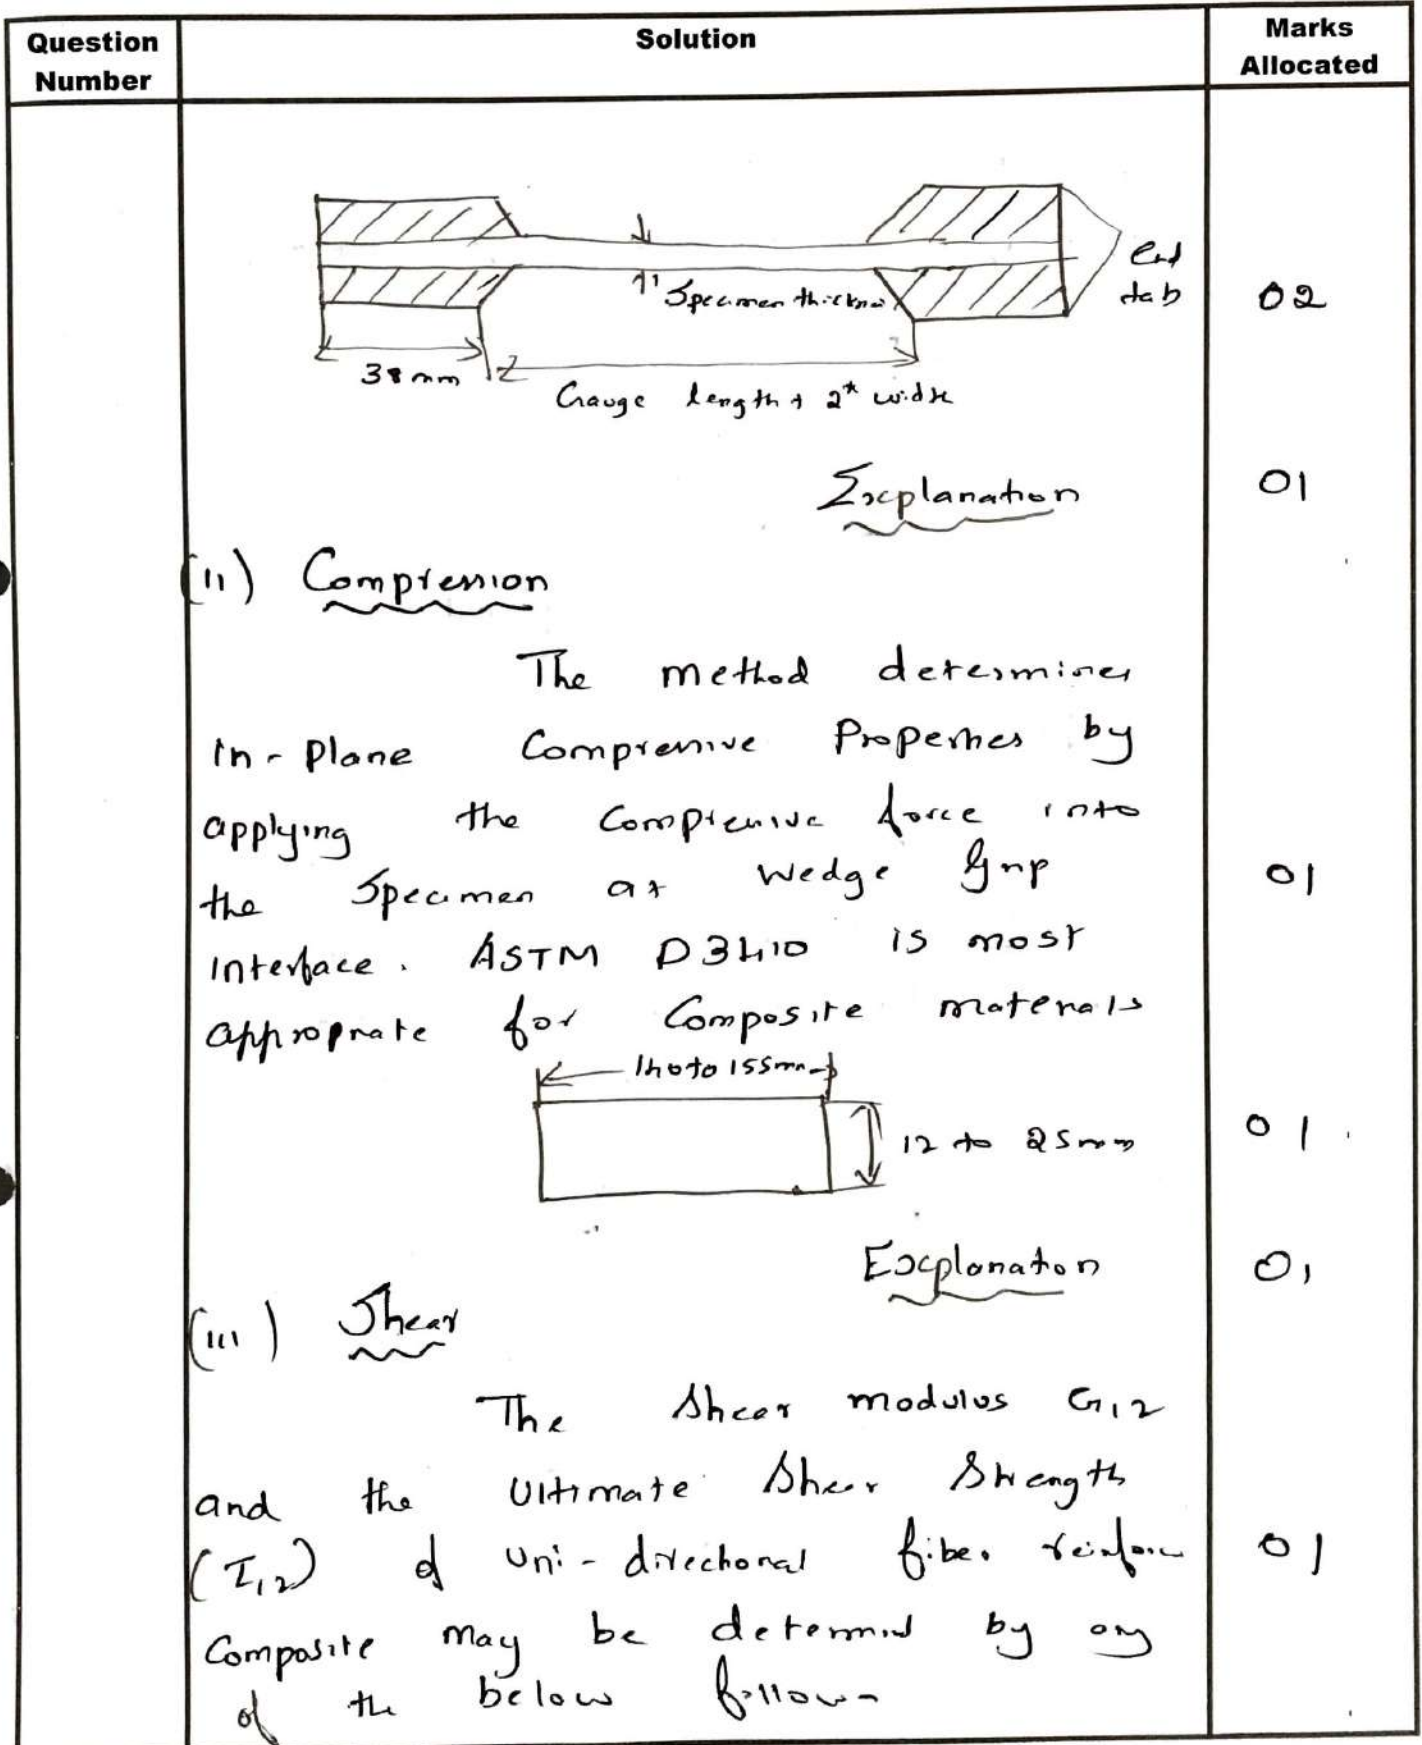 Question Number
Solution
Marks Allocated
End tab
Specimen thickn
02
38 mm
Gauge length + 2* width
Explanation
01
(ii) Compression
The method determines
in-plane Compressive Properties by
applying the Compressive force into
the Specimen at wedge grip
01
interface. ASTM D3410 is most
appropriate for Composite materials
140 to 155mm
12 to 25mm
01
Explanation
01
(iii) Shear
The Shear modulus G12
and the Ultimate Shear Strength
(τ12) of uni-directional fiber reinforc
01
Composite may be determind by any
of the below follown